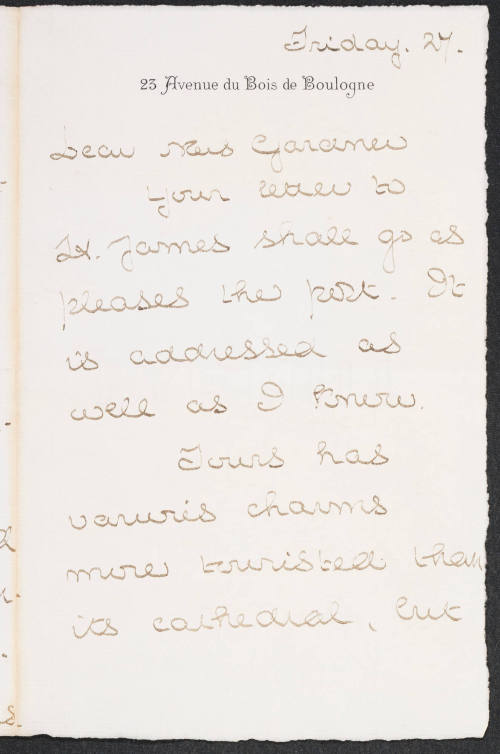 Friday. 27.
23 Avenue du Bois de Boulogne
Dear Mrs Gardner
Your letter to
H. James shall go as
pleases the post. It
is addressed as
well as I knew.
Tours has
various charms
more touristed than
its cathedral, but